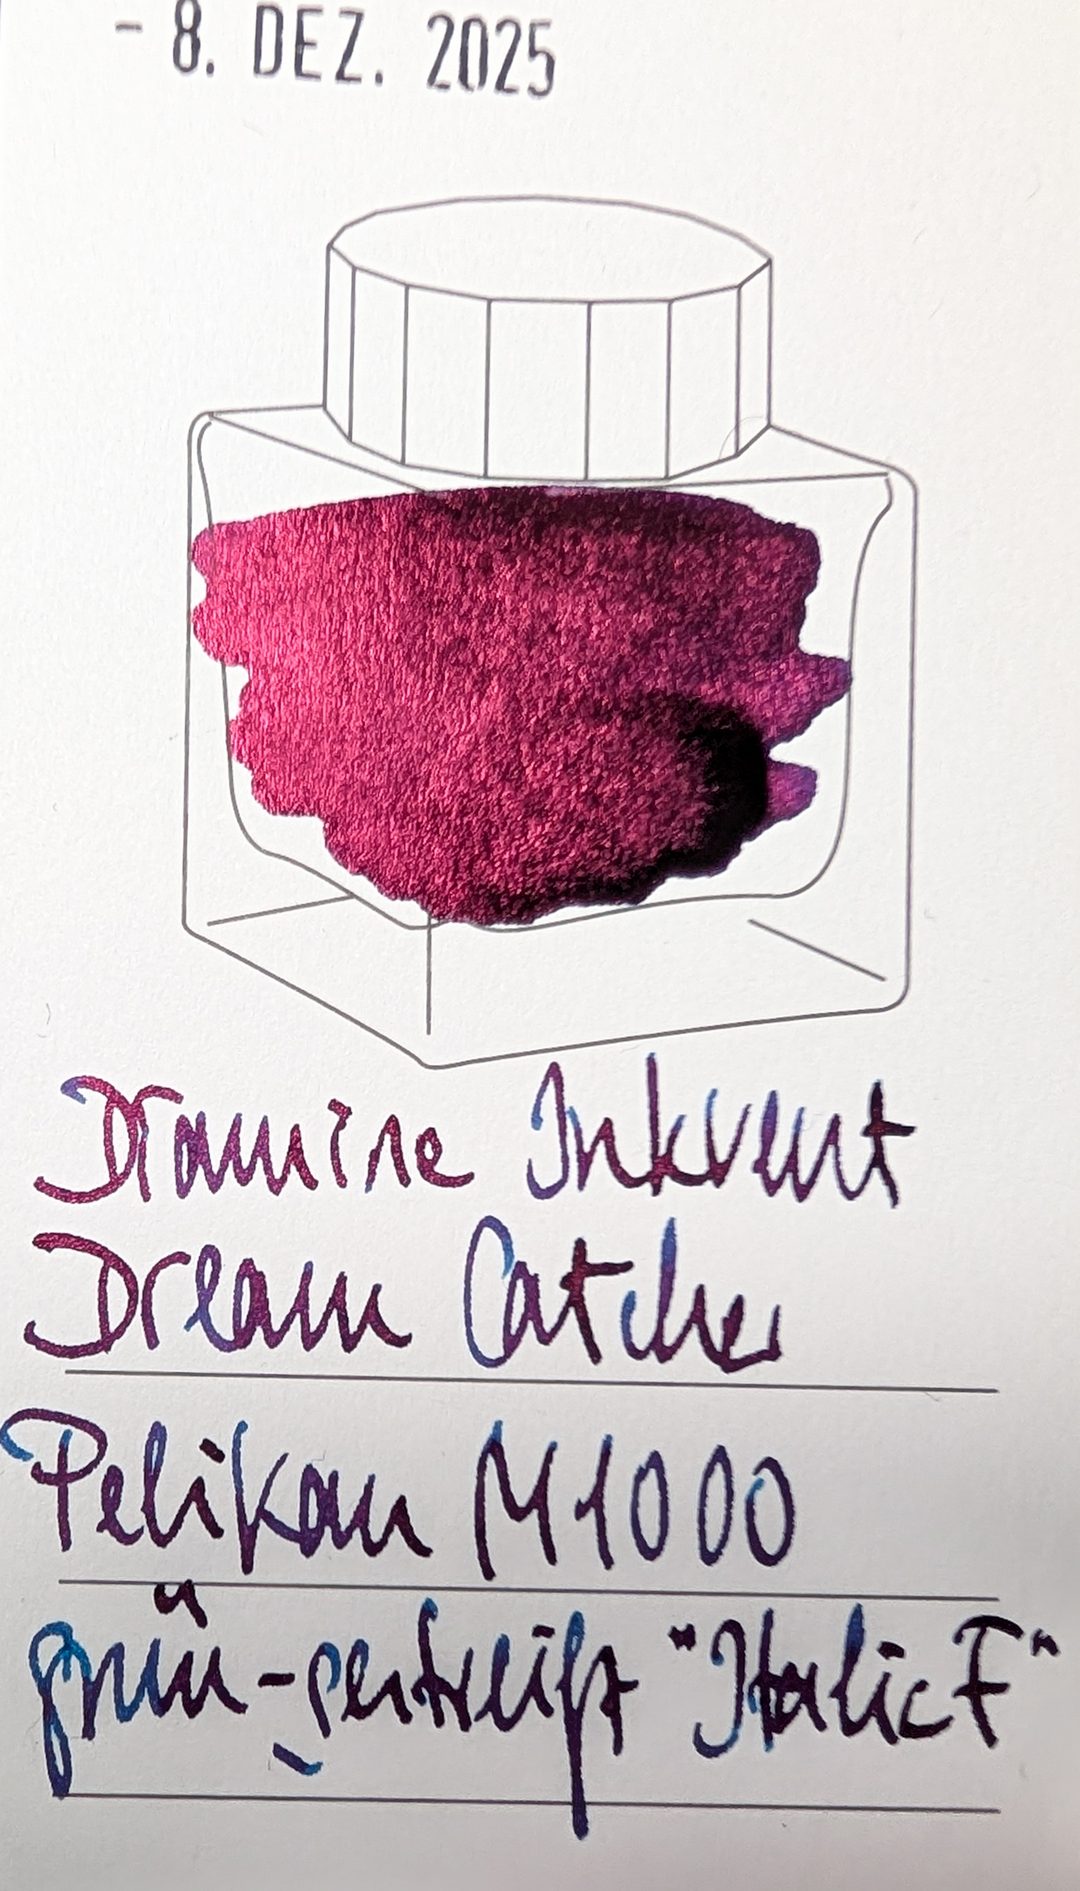 - 8. DEZ. 2025
Diamine Inkvent
Dream Catcher
Pelikan M1000
grün-gestreift "Italic F"